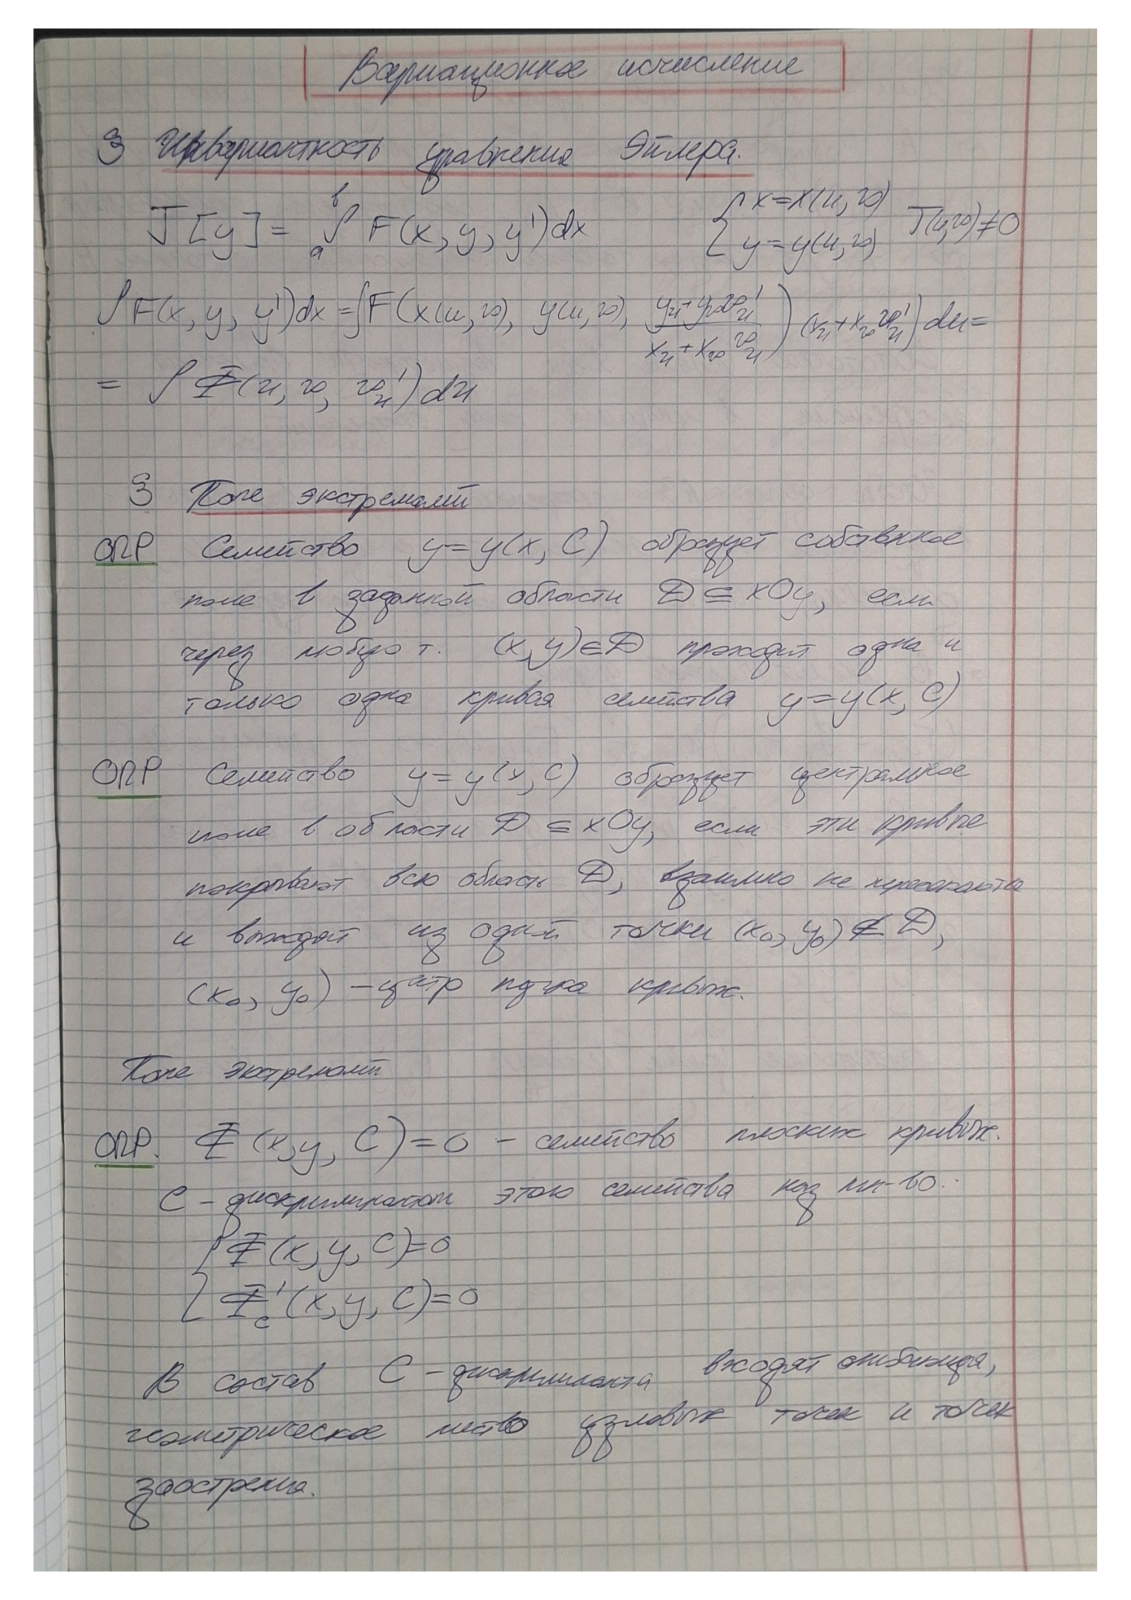 Вариационное исчисление
§ Инвариантность уравнения Эйлера.
J[y] = ∫_a^b F(x, y, y')dx { x=x(u,v) y=y(u,v) J(u,v)≠0
∫F(x, y, y')dx = ∫F(x(u,v), y(u,v), (y_u+y_v v'_u)/(x_u+x_v v'_u)) (x_u+x_v v'_u) du =
= ∫ Φ(u, v, v'_u) du
§ Поле экстремалей
ОПР Семейство y=y(x, C) образует собственное
поле в заданной области D ⊆ xOy, если
через любую т. (x,y)∈D проходит одна и
только одна кривая семейства y=y(x, C)
ОПР Семейство y=y(x,C) образует центральное
поле в области D ⊆ xOy, если эти кривые
покрывают всю область D, взаимно не пересекаются
и выходят из одной точки (x₀, y₀) ∉ D,
(x₀, y₀) – центр пучка кривых.
Поле экстремалей
ОПР. Φ(x,y, C)=0 – семейство плоских кривых.
C – дискриминантом этого семейства наз мн-во.
{ Φ(x, y, C)=0
Φ'_c(x, y, C)=0
В состав C – дискриминанта входят огибающая,
геометрическое место узловых точек и точек
заострения.